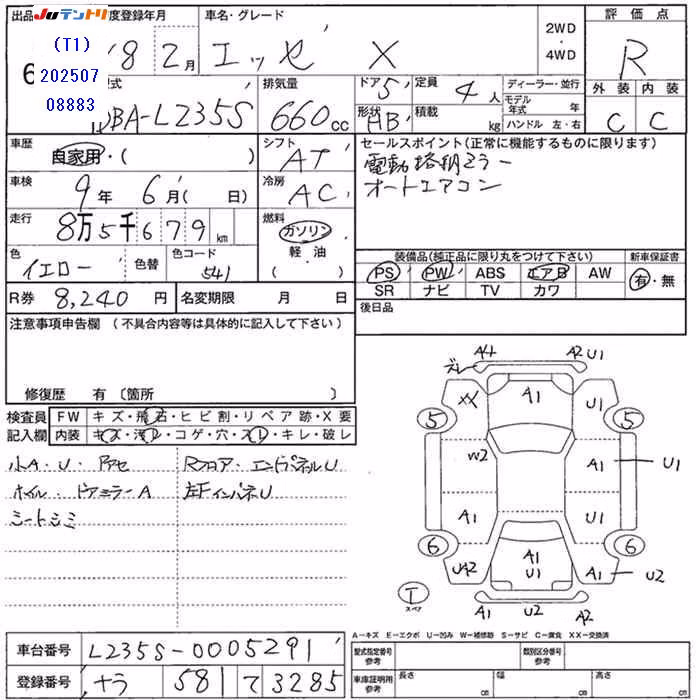 JUテントリ
(T1)
202507
08883
出品
度登録年月 車名・グレード 評価点
6 '8 2月 エッセ X 2WD 4WD R
型式 排気量 ドア 5 定員 4人 ディーラー・並行 外装 内装
DBA-L235S 660cc 形状 HB 積載 kg モデル年式 年 C C
ハンドル 左・右
車歴 自家用・( ) シフト AT セールスポイント(正常に機能するものに限ります)
電動格納ミラー
オートエアコン
車検 9年 6月( 日) 冷房 AC
走行 8万5千679km 燃料 ガソリン 軽油 ( )
色 イエロー 色替 色コード 541
装備品(純正品に限り丸をつけて下さい) 新車保証書
PS PW ABS エアB AW 有・無
SR ナビ TV カワ
R券 8,240円 名変期限 月 日 後日品
注意事項申告欄 (不具合内容等は具体的に記入して下さい)
修復歴 有 〔箇所 〕
検査員 FW キズ・飛石・ヒビ割・リペア跡・X要
記入欄 内装 キズ・汚レ・コゲ・穴・スレ・キレ・破レ
小A・U・ Rフロア・エンドパネルU
ホイル・ドアミラーA 左FインパネU
シートシミ
A4 A2 U1
XX A1 U1
5 5
W2 A1 U1
A1 U1
6 6
UA2 A1 U1 A1 U2
T スペア
A1 U2 A2
A－キズ E－エクボ U－凹み W－補修跡 S－サビ C－腐食 XX－交換済
車台番号 L235S-0005291 型式指定番号 参考 類別区分番号 参考
登録番号 ナラ 581 て 3285 車庫証明用 参考 長さ cm 幅 cm 高さ cm